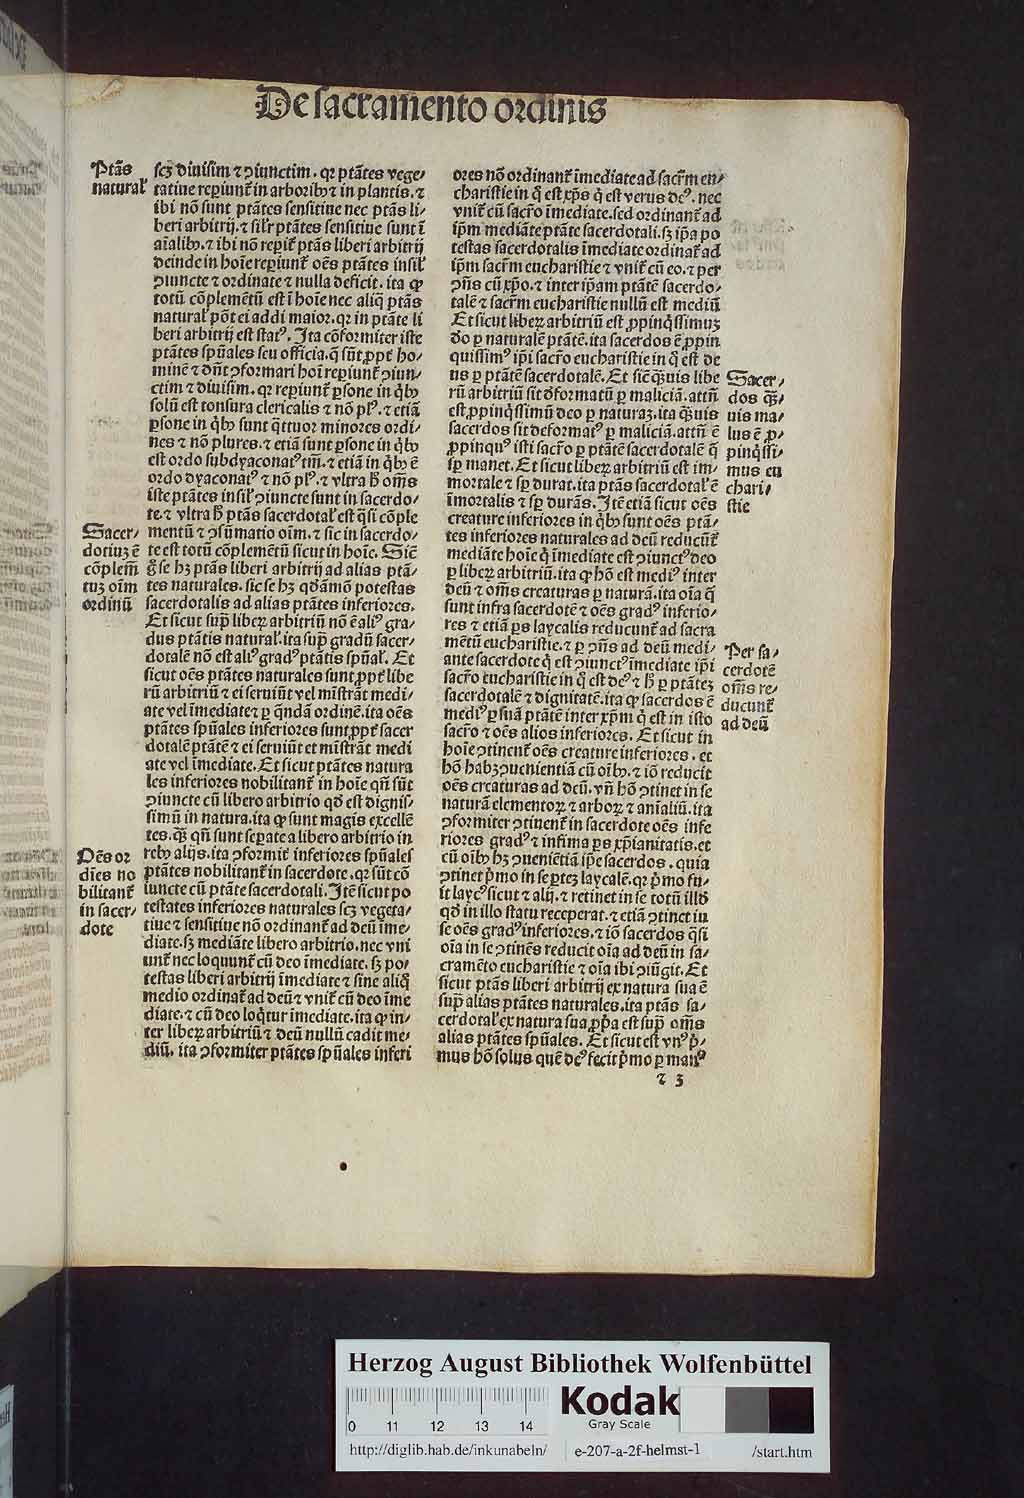 De sacramento ordinis
Ptātes
natural᷒
scꝫ diuisim ⁊ ꝯiunctim. qꝛ ptātes vege⸗
tatiue reꝑiunt᷒ in arboribꝰ ⁊ in plantis. ⁊
ibi nō sunt ptātes sensitiue nec ptās li⸗
beri arbitrij. ⁊ sil᷒r ptātes sensitiue sunt ī
aīalibꝰ. ⁊ ibi nō reꝑit᷒ ptās liberi arbitrij
deinde in hoīe reꝑiunt᷒ oēs ptātes insil᷒
ꝯiuncte ⁊ ordinate ⁊ nulla deficit. ita ꝙ
totū cōplemētū est ī hoīe nec aliq̄ ptās
natural᷒ pōt ei addi maior. qꝛ in ptāte li
beri arbitrij est statꝰ. Ita cōformiter iste
ptātes spūales seu officia. q̄ sūt ꝓpt᷒ ho⸗
minē ⁊ dn̄t ꝯformari hoī reꝑiunt᷒ ꝯiun⸗
ctim ⁊ diuisim. qꝛ reꝑiunt᷒ ꝑsone in qͥbꝰ
solū est tonsura clericalis ⁊ nō plꝰ. ⁊ etiā
ꝑsone in qͥbꝰ sunt q̄ttuor minores ordi⸗
nes ⁊ nō plures. ⁊ etiā sunt ꝑsone in qͥbꝰ
est ordo subdyaconatꝰ tm̄. ⁊ etiā in qͥbꝰ ē
ordo dyaconatꝰ ⁊ nō plꝰ. ⁊ vltra h̄ om̄s
iste ptātes insil᷒ ꝯiuncte sunt in sacerdo⸗
te. ⁊ vltra h̄ ptās sacerdotal᷒ est q̄si cōple
mentū ⁊ ꝯsūmatio oīm. ⁊ sic in sacerdo⸗
te est totū cōplemētū sicut in hoīe. Siē
g̊ se hꝫ ptās liberi arbitrij ad alias ptā⸗
tes naturales. sic se hꝫ qd̄āmō potestas
sacerdotalis ad alias ptātes inferiores.
Et sicut sup̄ liberꝫ arbitriū nō ē aliꝰ gra⸗
dus ptātis natural᷒. ita sup̄ gradū sacer⸗
dotalē nō est aliꝰ gradꝰ ptātis spūal᷒. Et
sicut oēs ptātes naturales sunt ꝓpt᷒ libe
rū arbitriū ⁊ ei seruiūt vel mīstrāt medi⸗
ate vel īmediate ⁊ ꝑ q̄ndā ordinē. ita oēs
ptātes spūales inferiores sunt ꝓpt᷒ sacer
dotalē ptātē ⁊ ei seruiūt et mīstrāt medi
ate vel īmediate. Et sicut ptātes natura
les inferiores nobilitant᷒ in hoīe qn̄ sūt
ꝯiuncte cū libero arbitrio qd̄ est dignis⸗
simū in natura. ita ꝙ sunt magis excellē
tes. q̄ꝫ qn̄ sunt seꝑate a libero arbitrio in
rebꝰ alijs. ita ꝯformit᷒ inferiores spūales
ptātes nobilitant᷒ in sacerdote. qꝛ sūt cō
iuncte cū ptāte sacerdotali. Itē sicut po
testates inferiores naturales scꝫ vegeta⸗
tiue ⁊ sensitiue nō ordinant᷒ ad deū īme⸗
diate. sꝫ mediāte libero arbitrio. nec vni
unt᷒ nec loquunt᷒ cū deo īmediate. sꝫ po⸗
testas liberi arbitrij īmediate ⁊ sine aliq̊
medio ordinat᷒ ad deū ⁊ vnit᷒ cū deo īme
diate. ⁊ cū deo loqͥtur īmediate. ita ꝙ in⸗
ter liberꝫ arbitriū ⁊ deū nullū cadit me⸗
diū. ita ꝯformiter ptātes spūales inferi
Sacer⸗
dotiuꝫ ē
cōplem̄
tuꝫ oīm
ordinū
Oēs or
dīes no
bilitant᷒
in sacer⸗
dote
ores nō ordinant᷒ īmediate ad sacr̄m eu⸗
charistie in q̊ est xp̄s qͥ est verus deꝰ. nec
vnit᷒ cū sacr̄o īmediate. sed ordinant᷒ ad
ip̄m mediāte ptāte sacerdotali. sꝫ ip̄a po
testas sacerdotalis īmediate ordinat᷒ ad
ip̄m sacr̄m eucharistie ⁊ vnit᷒ cū eo. ⁊ per
ꝯn̄s cū xp̄o. ⁊ inter ip̄am ptātē sacerdo⸗
talē ⁊ sacr̄m eucharistie nullū est mediū
Et sicut liberꝫ arbitriū est ꝓpinqͥssimuꝫ
do ꝑ naturalē ptātē. ita sacerdos ē ꝓpin
quissimꝰ ip̄i sacr̄o eucharistie in q̊ est de
us ꝑ ptātē sacerdotalē. Et siē q̄ꝫuis libe
rū arbitriū sit d̄formatū ꝑ maliciā. attn̄
est ꝓpinqͥssimū deo ꝑ naturaꝫ. ita q̄ꝫuis
sacerdos sit deformatꝰ ꝑ maliciā. attn̄ ē
ꝓpinquꝰ isti sacr̄o ꝑ ptātē sacerdotalē q̄
sp̄ manet. Et sicut liberꝫ arbitriū est im⸗
mortale ⁊ sp̄ durat. ita ptās sacerdotal᷒ ē
īmortalis ⁊ sp̄ durās. Itē etiā sicut oēs
creature inferiores in qͥbꝰ sunt oēs ptā⸗
tes inferiores naturales ad deū reducūt᷒
mediāte hoīe qͥ īmediate est ꝯiunctꝰ deo
ꝑ liberꝫ arbitriū. ita ꝙ hō est mediꝰ inter
deū ⁊ om̄s creaturas ꝑ naturā. ita oīa q̄
sunt infra sacerdotē ⁊ oēs gradꝰ inferio⸗
res ⁊ etiā ꝑs laycalis reducunt᷒ ad sacra
mētū eucharistie. ⁊ ꝑ ꝯn̄s ad deū medi⸗
ante sacerdote qͥ est ꝯiunctꝰ īmediate ip̄i
sacr̄o eucharistie in q̊ est deꝰ ⁊ h̄ ꝑ ptāteꝫ
sacerdotalē ⁊ dignitatē. ita ꝙ sacerdos ē
mediꝰ ꝑ suā ptātē inter xp̄m qͥ est in isto
sacr̄o ⁊ oēs alios inferiores. Et sicut in
hoīe ꝯtinent᷒ oēs creature inferiores. et
hō habꝫ ꝯuenientiā cū oībꝰ. ⁊ iō reducit
oēs creaturas ad deū. vn̄ hō ꝯtinet in se
naturā elementoꝝ ⁊ arboꝝ ⁊ aīaliū. ita
ꝯformiter ꝯtinent᷒ in sacerdote oēs infe
riores gradꝰ ⁊ infima ꝑs xp̄ianitatis. et
cū oībꝰ hꝫ ꝯueniētiā ip̄e sacerdos. quia
ꝯtinet pͥmo in se ꝑteꝫ laycalē. qꝛ pͥmo fu⸗
it laycꝰ sicut ⁊ alij. ⁊ retinet in se totū illd̄
qd̄ in illo statu receperat. ⁊ etiā ꝯtinet in
se oēs gradꝰ inferiores. ⁊ iō sacerdos q̄si
oīa in se ꝯtinēs reducit oīa ad deū in sa⸗
cramēto eucharistie ⁊ oīa ibi ꝯiūgit. Et
sicut ptās liberi arbitrij ex natura sua ē
sup̄ alias ptātes naturales. ita ptās sa⸗
cerdotal᷒ ex natura sua ꝓpͥa est sup̄ om̄s
alias ptātes spūales. Et sicut est vnꝰ pͥ⸗
mus hō solus quē deꝰ fecit pͥmo ꝑ manꝰ
Sacer⸗
dos q̄ꝫ⸗
uis ma⸗
lus ē ꝓ⸗
pinqͥssi⸗
mus eu
chari⸗
stie
Per sa⸗
cerdotē
om̄s re⸗
ducunt᷒
ad deū
⁊ 3
Herzog August Bibliothek Wolfenbüttel
Kodak
Gray Scale
0 11 12 13 14
http://diglib.hab.de/inkunabeln/ e-207-a-2f-helmst-1 /start.htm